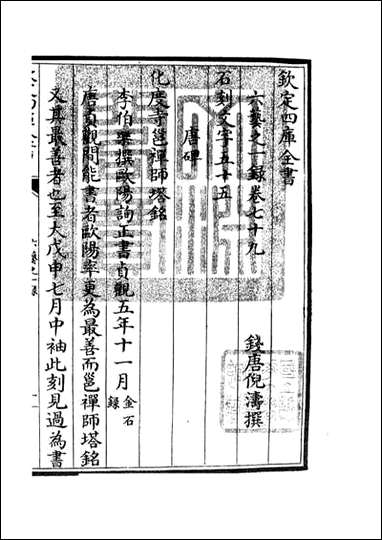 欽定四庫全書
六藝之一録卷七十九
錢唐倪濤撰
石刻文字五十五
唐碑
化度寺邕禪師塔銘
李伯藥撰歐陽詢正書貞觀五年十一月金石録
唐貞觀間能書者歐陽率更為最善而邕禪師塔銘
又其最善者也至大戊申七月中袖此刻見過為書